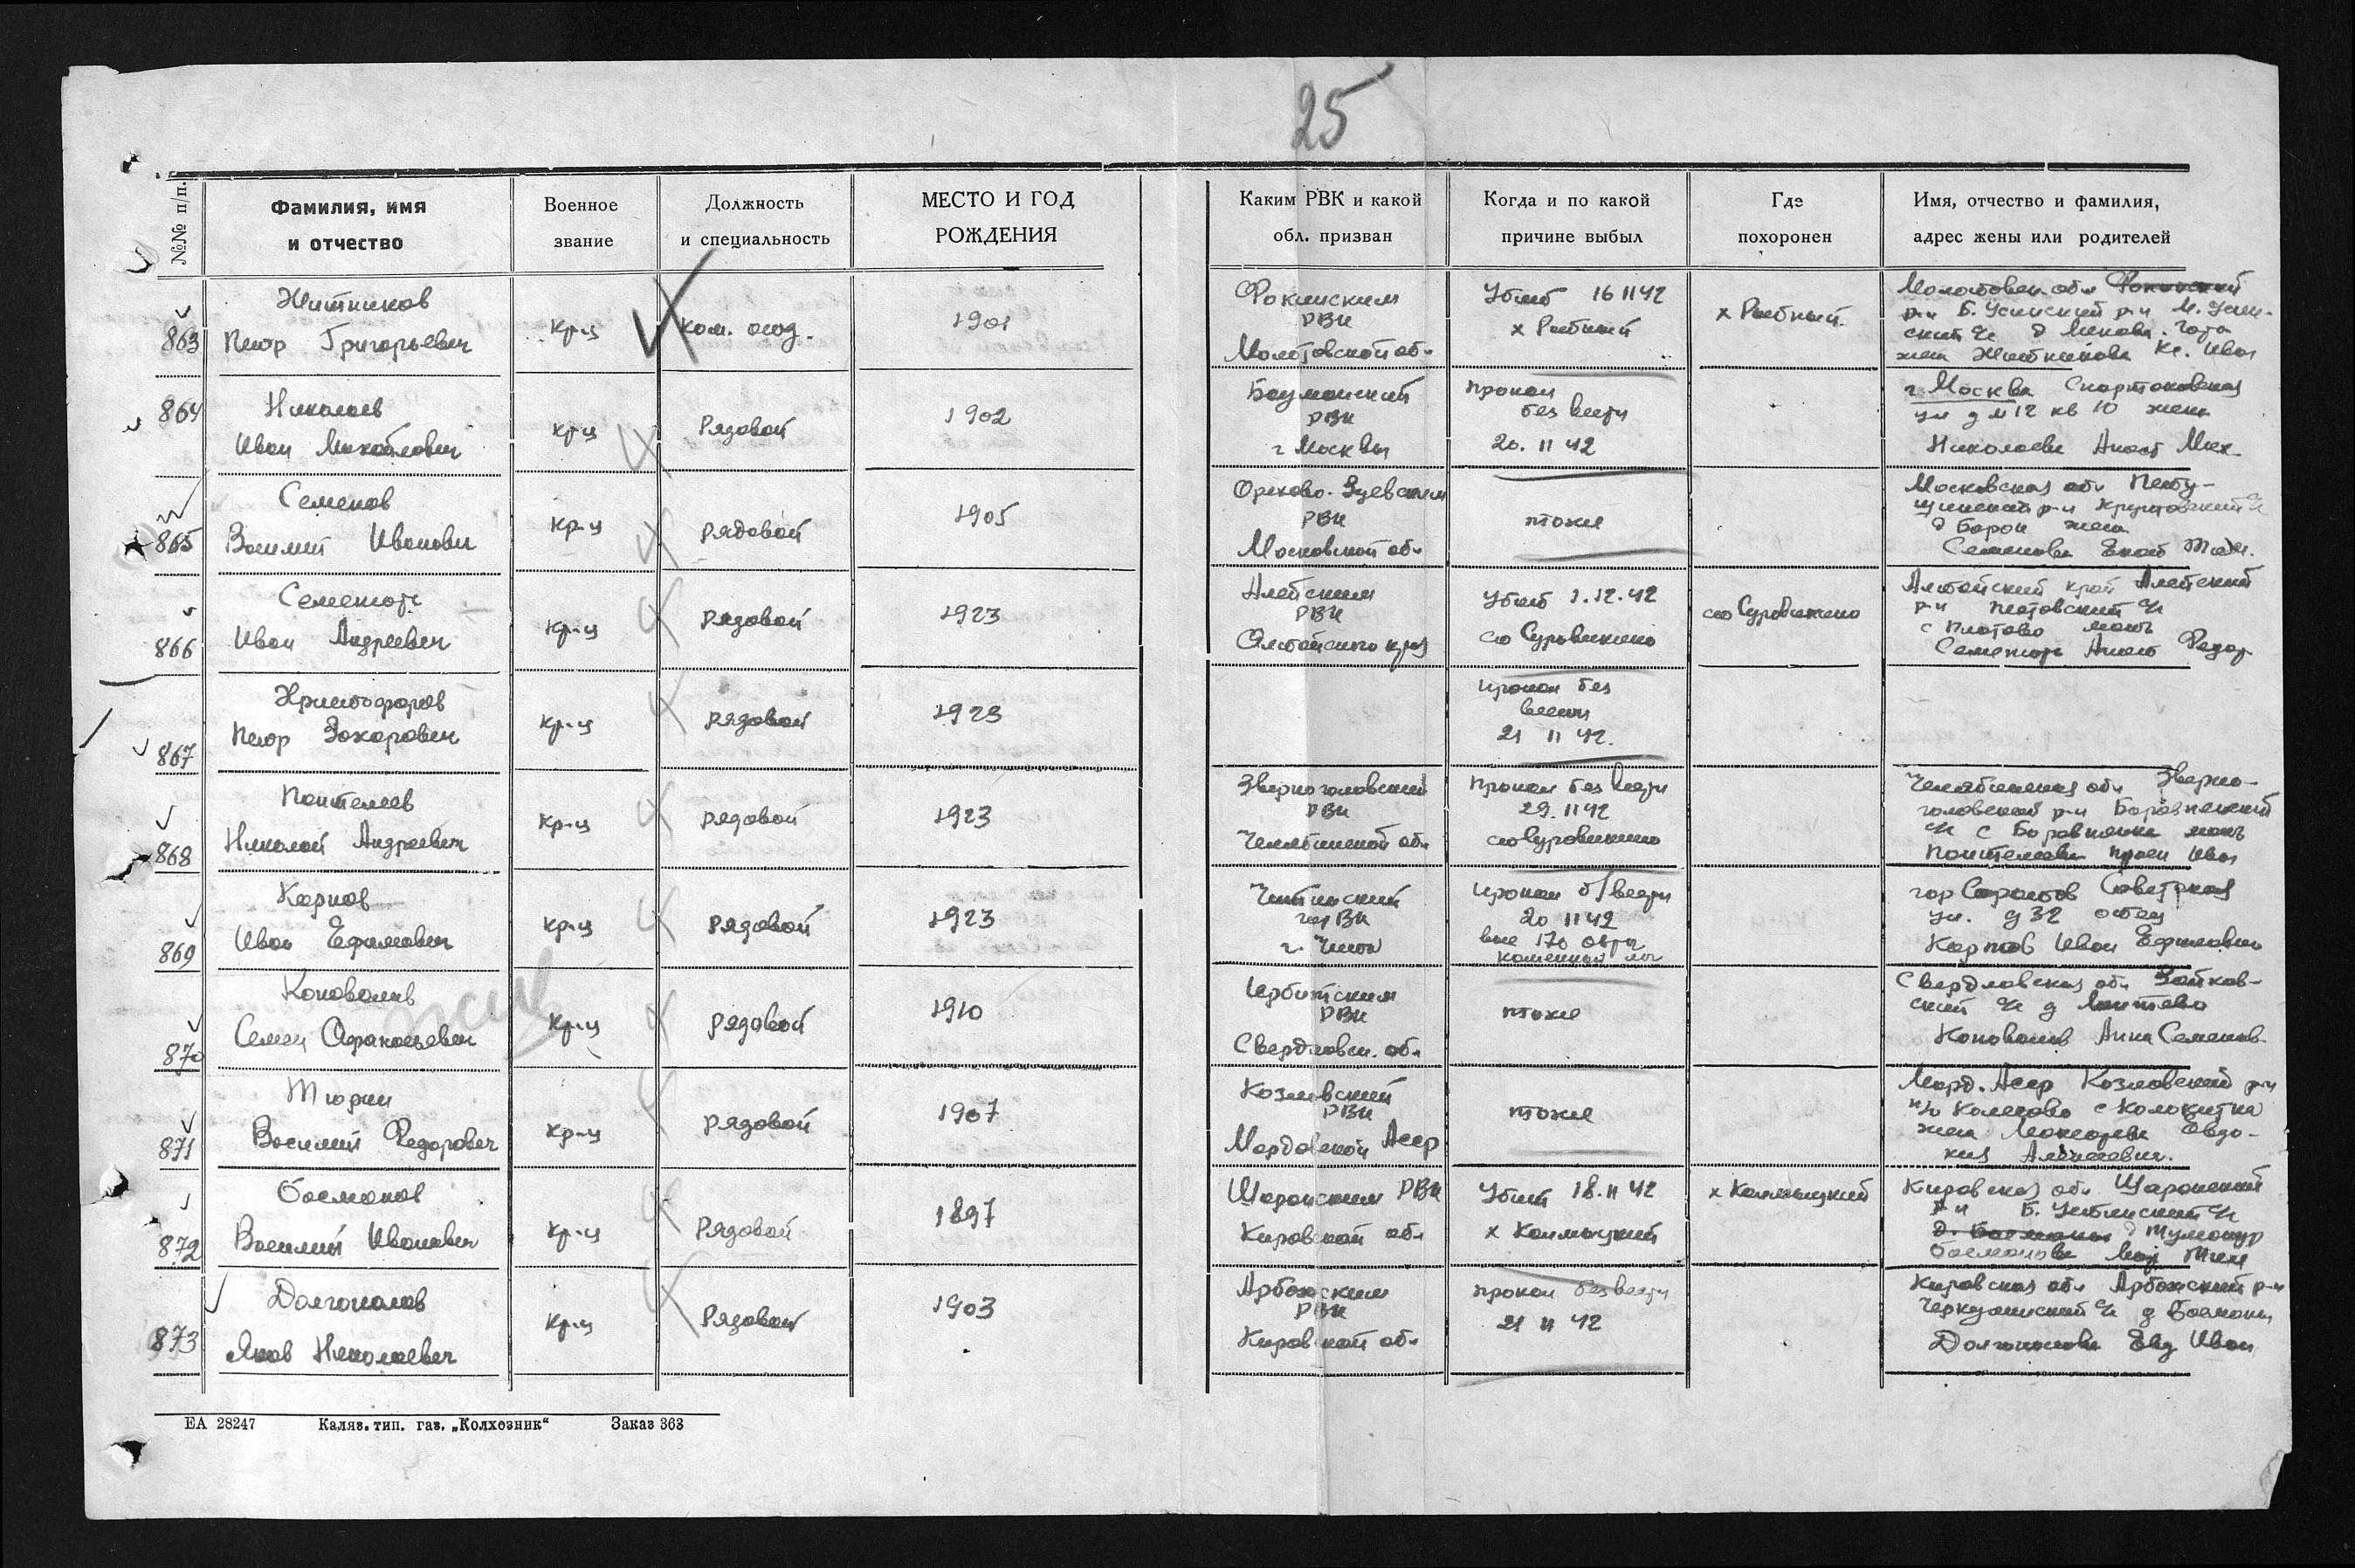 25
№№ п/п.
Фамилия, имя
и отчество
Военное
звание
Должность
и специальность
МЕСТО И ГОД
РОЖДЕНИЯ
Каким РВК и какой
обл. призван
Когда и по какой
причине выбыл
Где
похоронен
Имя, отчество и фамилия,
адрес жены или родителей
863
Житников
Петр Григорьевич
кр-ц
ком. отд.
1901
Фокинским
РВК
Молотовской обл
Убит 16 11 42
х Рыбный
х Рыбный
Молотовск обл Фокинский
р-н Б. Усинский р-н
жена Житникова Кл. Иван
864
Николаев
Иван Михайлович
кр-ц
Рядовой
1902
Бауманский
РВК
г Москвы
пропал
без вести
20. 11 42
г. Москва Спартаковская
ул д № 12 кв 10 жена
Николаева Анаст Мих.
865
Семенов
Василий Иванович
кр-ц
рядовой
1905
Орехово-Зуевским
РВК
Московской обл
тоже
Московская обл Пету-
шинский р-н
жена
Семенова Екат
866
Иван Андреевич
кр-ц
рядовой
1923
Алейским
РВК
Алтайского края
Убит 1.12.42
ст Суровикино
ст Суровикино
Алтайский край Алейский
р-н Плотовский с/с
с Плотово мать
Анаст Федор
867
Христофоров
Петр Захарович
кр-ц
рядовой
1923
пропал без
вести
21 11 42.
868
Пантелеев
Николай Андреевич
кр-ц
рядовой
1923
Звериноголовский
РВК
Челябинской обл
пропал без вести
29. 11 42
ст Суровикино
Челябинская обл Зверино-
головский р-н Боровлянский
с/с с Боровлянка мать
Пантелеева Иван
869
Карпов
Иван Ефимович
кр-ц
рядовой
1923
Читинский
гор ВК
г. Чита
пропал б/вести
20 11 42
выс 170
гор Саратов Советская
ул. д 32 отец
Карпов Иван Ефимович
870
Коновалов
Семен Афанасьевич
жив
кр-ц
рядовой
1910
Ирбитским
РВК
Свердловск. обл
тоже
Свердловская обл Зайков-
ский с/с д
Коновалов Анна Семенов.
871
Тюрин
Василий Федорович
кр-ц
рядовой
1907
Козловский
РВК
Мордовской Асср
тоже
Морд. Асср Козловский р-н
жена Евдо-
кия Алексеевич.
872
Босманов
Василий Иванович
кр-ц
рядовой
1897
Шарангским РВК
Кировской обл
Убит 18. 11 42
х Калмыцкий
х Калмыцкий
Кировская обл Шарангский
р-н
873
Долгополов
Яков Николаевич
кр-ц
Рядовой
1903
Арбажским
РВК
Кировской обл
пропал без вести
21 11 42
Кировская обл Арбажский р-н
Долгополова Евд Иван
ЕА 28247 Каляз. тип. газ. „Колхозник“ Заказ 363